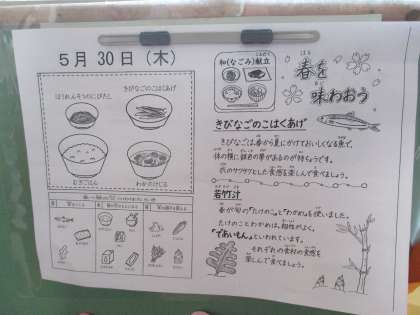 ５月 30日（木）
和(なごみ)献立
春を
味わおう
ほうれんそうのにびたし
きびなごのこはくあげ
むぎごはん
わかたけじる
きびなごのこはくあげ
きびなごは、春から夏にかけておいしくなる魚で、
体の横に銀色の帯があるのが特ちょうです。
衣のサクサクとした食感を楽しんで食べましょう。
若竹汁
春が旬の「たけのこ」と「わかめ」を使いました。
たけのことわかめは、相性がよく、
「であいもん」といわれています。
それぞれの食材の食感を
楽しんで食べましょう。